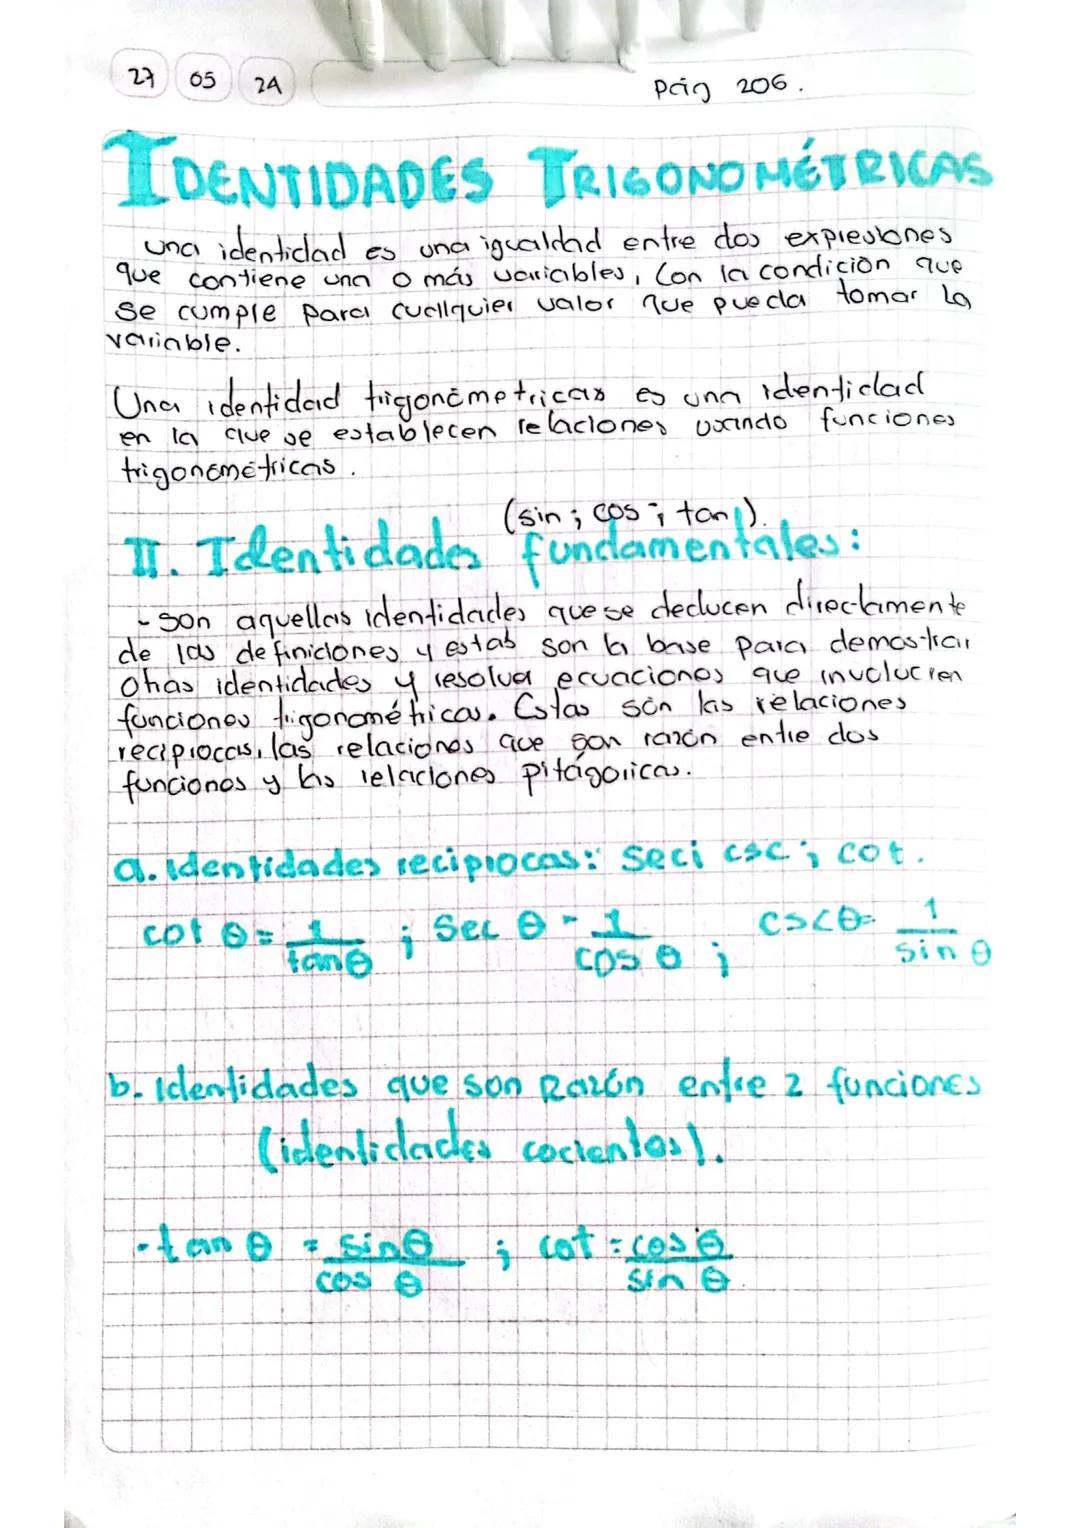 27 05 24
Pág 206.
IDENTIDADES TRIGONOMÉTRICAS
una identidad es una igualdad entre dos expresiones
que contiene una o más variables, con la condición que
se cumple para cuallquier valor que pueda tomar la
variable.
Una identidad trigonómetricas es una identidad
en la que se establecen relaciones usando funciones
trigonómétricas.
(sin ; cos ; tan).
II. Identidades fundamentales:
- son aquellas identidades que se deducen directamente
de las definiciones y estas son la base para demostrar
otras identidades y resolver ecuaciones que involucren
funciones trigonométricas. Estas són las relaciones
reciprocas, las relaciones que son razón entre dos
funciones y las relaciones pitágoricas.
a. Identidades reciprocas: sec; csc ; cot.
cot θ = 1/tan θ ; sec θ = 1/cos θ ; csc θ = 1/sin θ
b. Identidades que son Razón entre 2 funciones
(identidades cocientes).
- tan θ = sin θ/cos θ ; cot = cos θ/sin θ